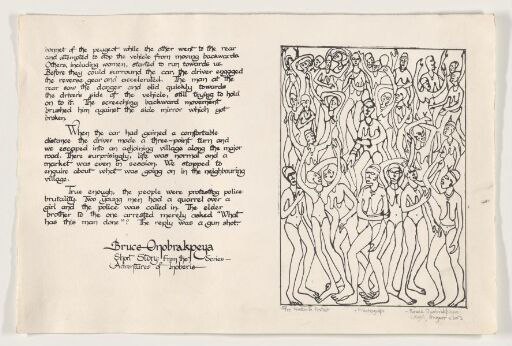 bonnet of the peugeot while the other went to the rear
and attempted to stop the vehicle from moving backwards.
Others, including women, started to run towards us.
Before they could surround the car, the driver engaged
the reverse gear and accelerated. The man at the
rear saw the danger and slid quickly towards
the driver's side of the vehicle, still trying to hold
on to it. The screeching backward movement
brushed him against the side mirror which got
broken.
When the car had gained a comfortable
distance the driver made a three-point turn and
we escaped into an adjoining village along the major
road. There surprisingly, life was normal and a
market was even in session. We stopped to
enquire about what was going on in the neighbouring
village.
True enough, the people were protesting police
brutality. Two young men had a quarrel over a
girl and the police was called in. The elder
brother to the one arrested merely asked "What
has this man done"? The reply was a gun shot.
Bruce Onobrakpeya
Short Story from the Series
Adventures of
Bruce Onobrakpeya